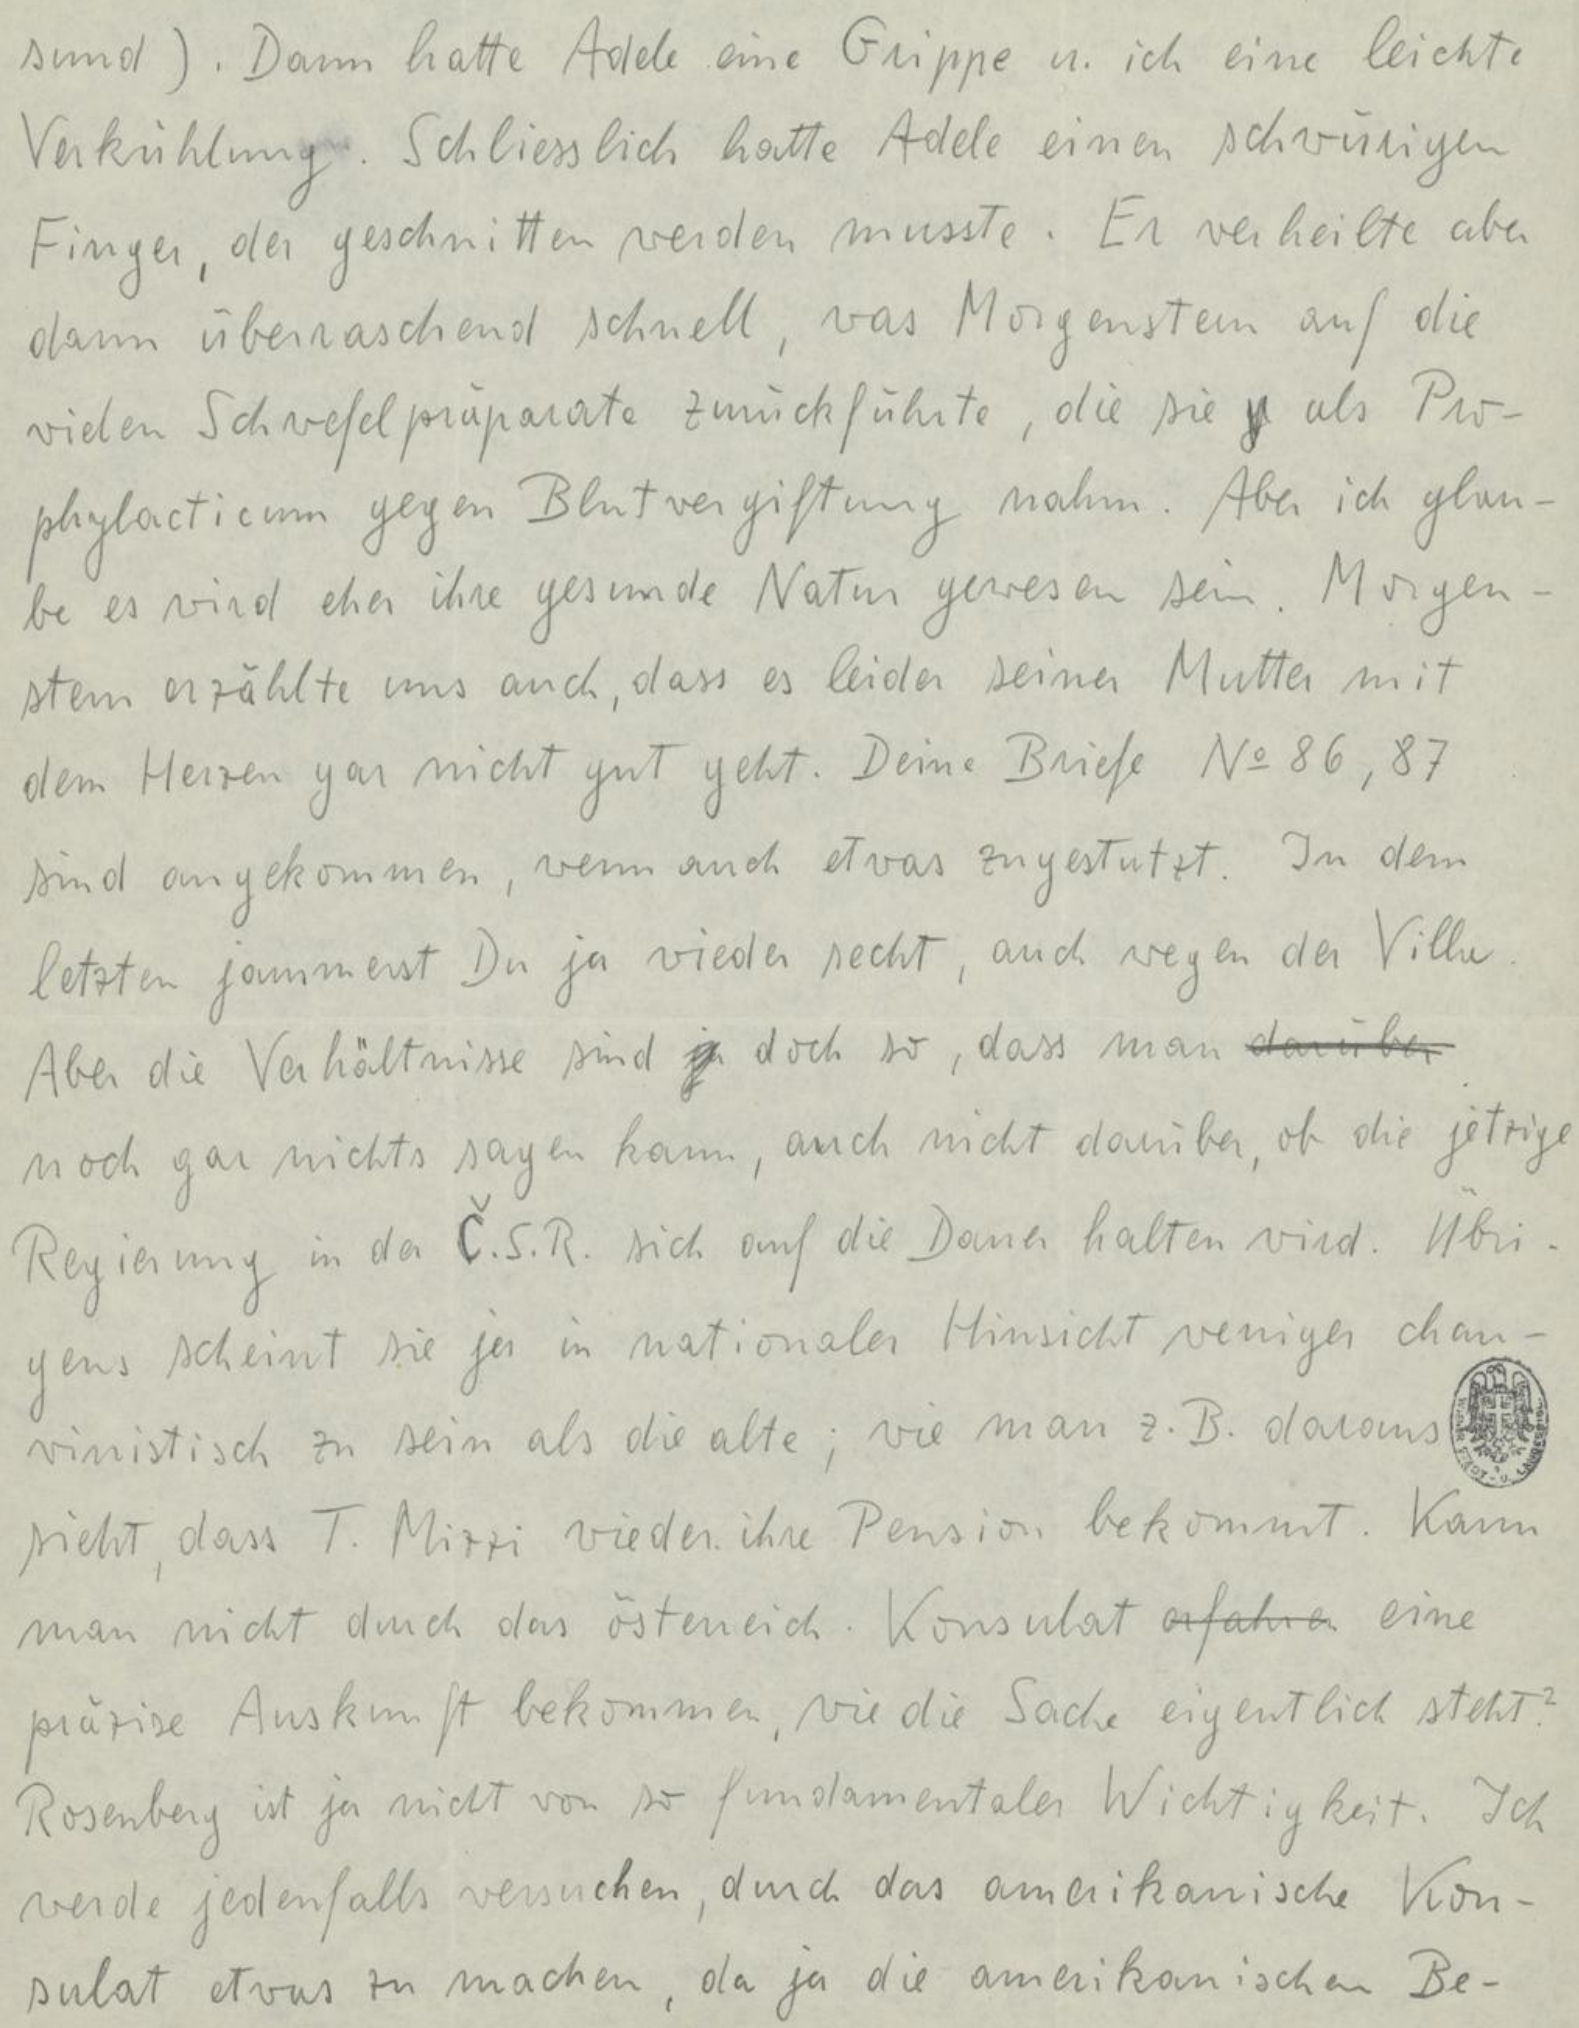 sund). Dann hatte Adele eine Grippe u. ich eine leichte
Verkühlung. Schliesslich hatte Adele einen schwürigen
Finger, der geschnitten werden musste. Er verheilte aber
dann überraschend schnell, was Morgenstern auf die
vielen Schwefelpräparate zurückführte, die sie als Pro-
phylacticum gegen Blutvergiftung nahm. Aber ich glau-
be es wird eher ihre gesunde Natur gewesen sein. Morgen-
stern erzählte uns auch, dass es leider seiner Mutter mit
dem Herzen gar nicht gut geht. Deine Briefe Nº 86, 87
sind angekommen, wenn auch etwas zugestutzt. In dem
letzten jammerst Du ja wieder recht, auch wegen der Villa.
Aber die Verhältnisse sind ja doch so, dass man darüber
noch gar nichts sagen kann, auch nicht darüber, ob die jetzige
Regierung in der Č.S.R. sich auf die Dauer halten wird. Übri-
gens scheint sie ja in nationaler Hinsicht weniger chau-
vinistisch zu sein als die alte; wie man z. B. daraus
sieht, dass T. Mizzi wieder ihre Pension bekommt. Kann
man nicht durch das österreich. Konsulat erfahren eine
präzise Auskunft bekommen, wie die Sache eigentlich steht?
Rosenberg ist ja nicht von so fundamentaler Wichtigkeit. Ich
werde jedenfalls versuchen, durch das amerikanische Kon-
sulat etwas zu machen, da ja die amerikanischen Be-